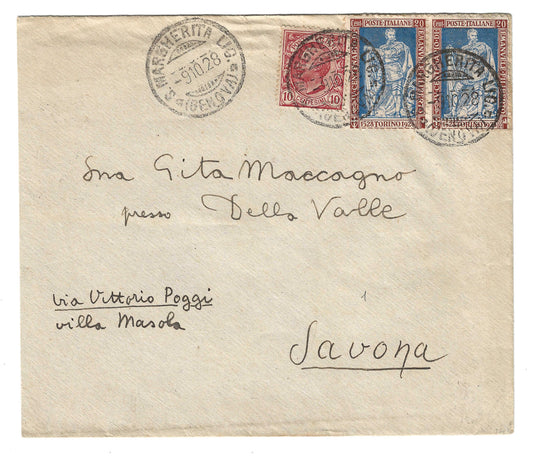 S. MARGHERITA LIG.
-9.10.28
(GENOVA)
10 10
POSTE·ITALIANE 20
1528 TORINO 1928
POSTE·ITALIANE 20
1528 TORINO 1928
Sna Gita Maccagno
presso Della Valle
via Vittorio Poggi
villa Masola
Savona